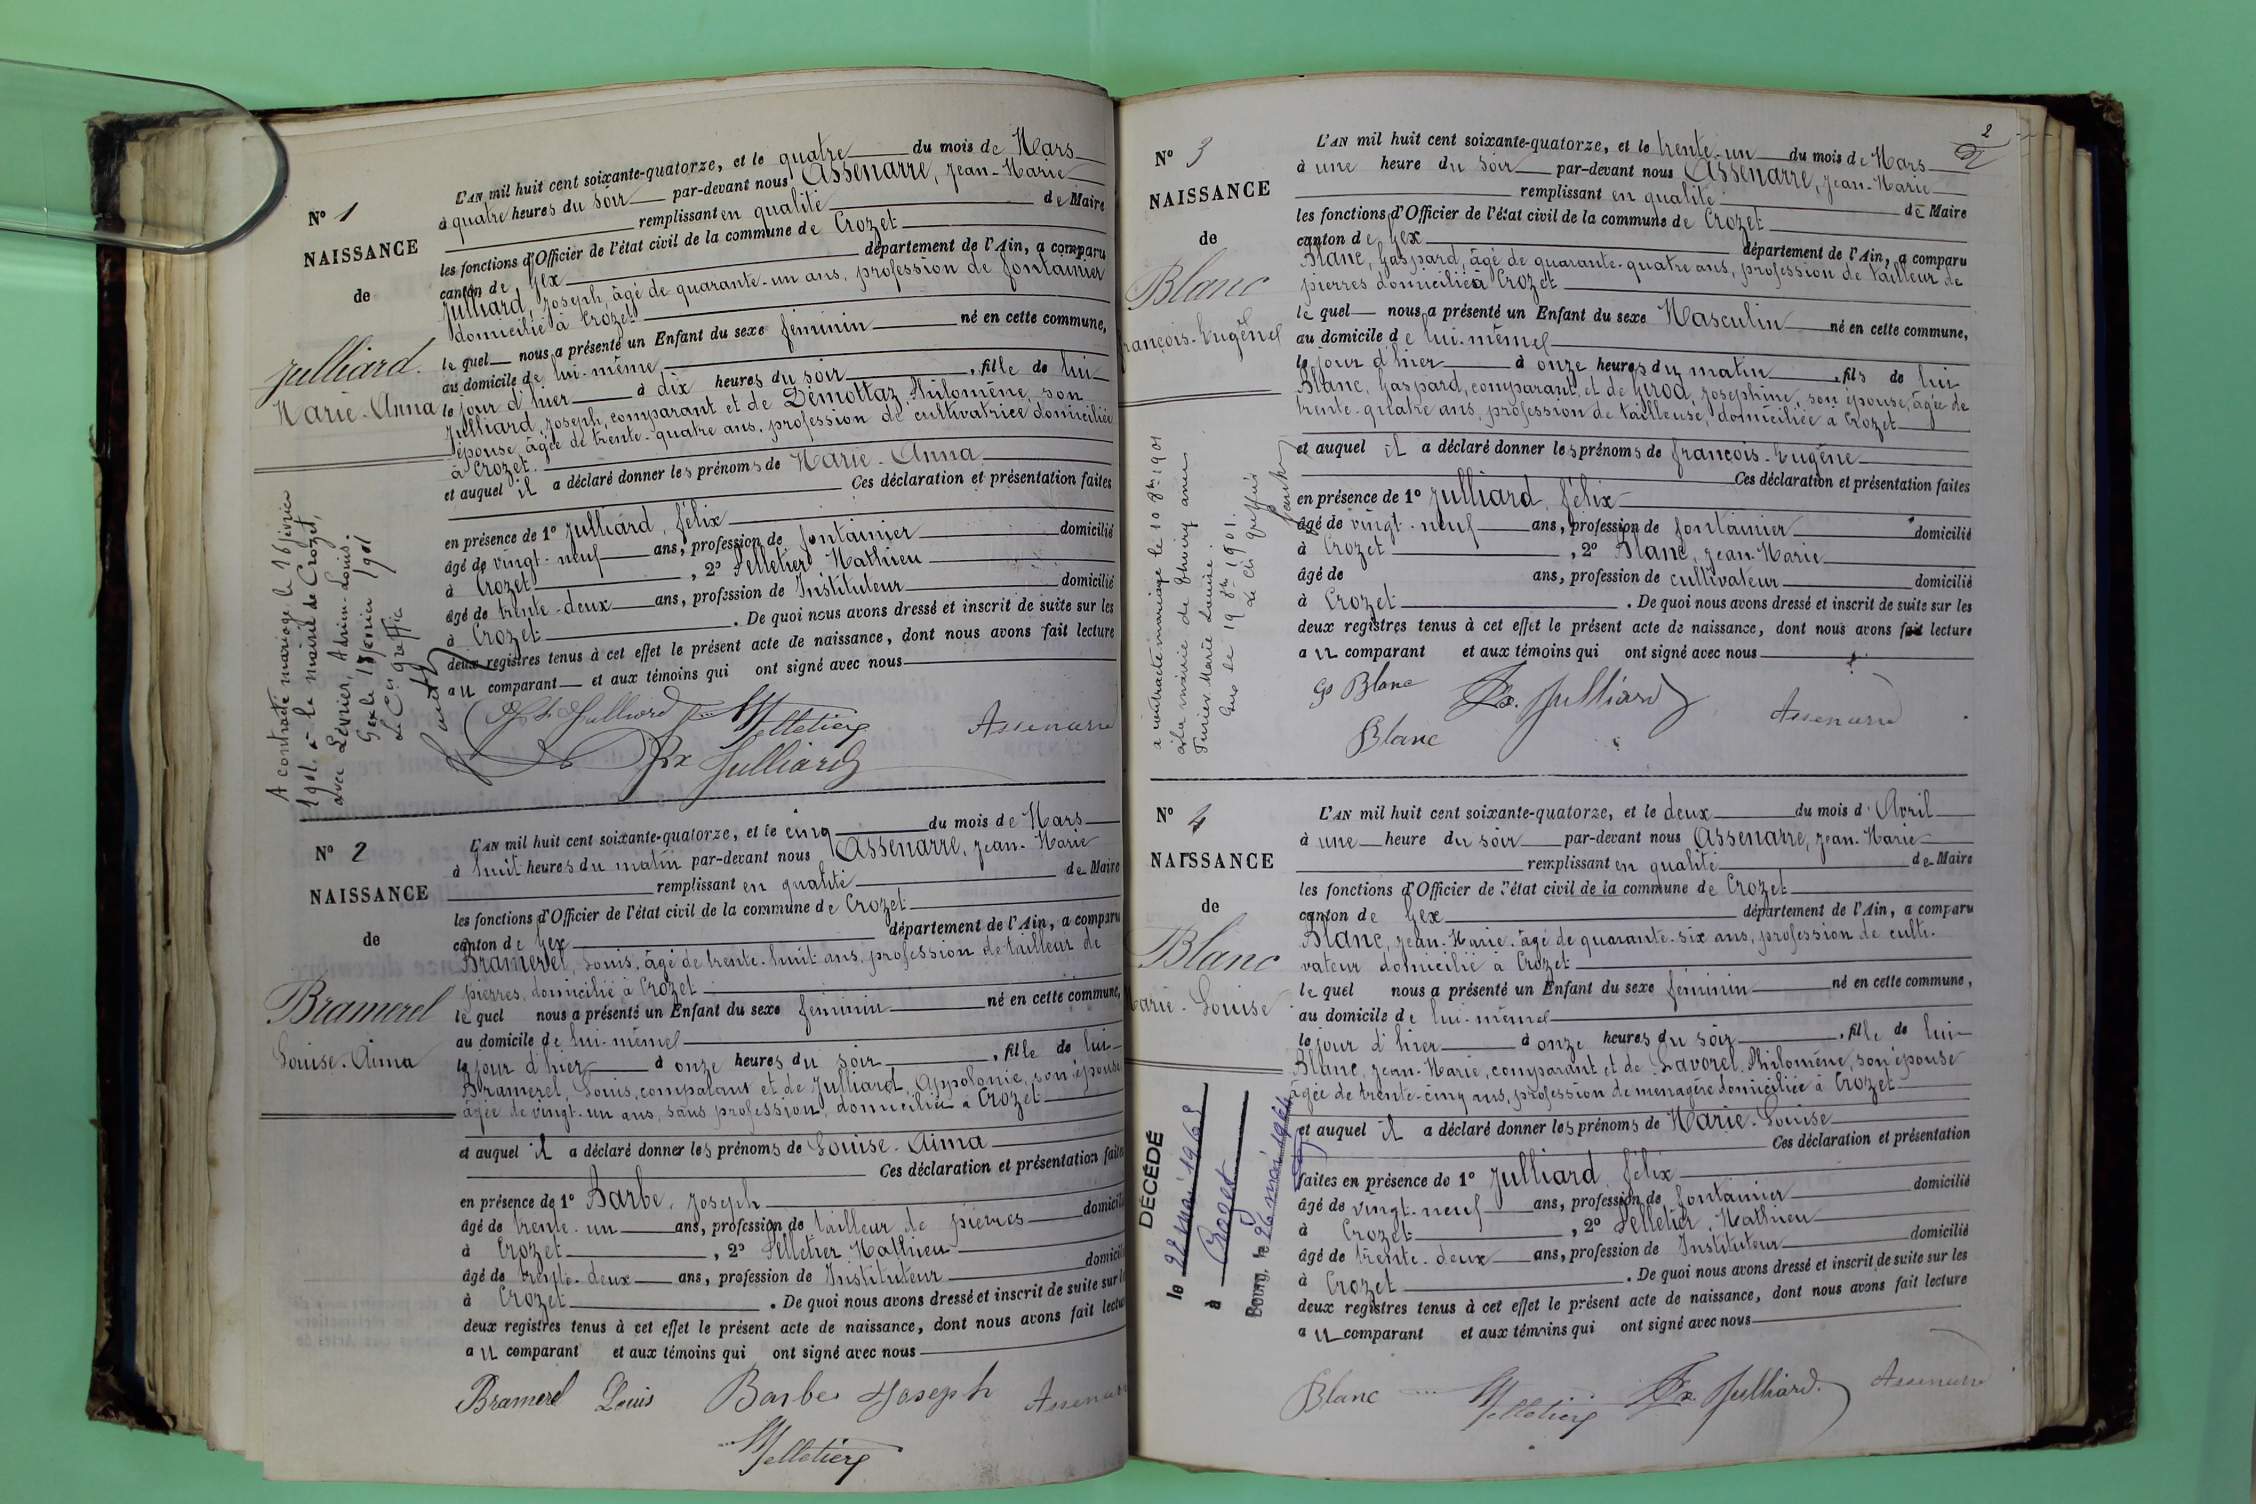 N° 1
NAISSANCE
de
Julliard.
Marie-Anna
A contracté mariage le 16 février
1901 à la mairie de Crozet,
avec Lévrier, Adrien-Louis.
Gex le 18 février 1901
Le Cis greffier
L'AN mil huit cent soixante-quatorze, et le quatre du mois de Mars
à quatre heures du soir par-devant nous Assenarre, Jean-Marie
remplissant en qualité de Maire
les fonctions d'Officier de l'état civil de la commune de Crozet
canton de Gex département de l'Ain, a comparu
Julliard, Joseph, âgé de quarante-un ans, profession de fontainier
domicilié à Crozet
lequel nous a présenté un Enfant du sexe féminin né en cette commune,
au domicile de lui-même
le jour d'hier à dix heures du soir, fille de lui
Julliard, Joseph, comparant et de Démottaz, Philomène, son
épouse, âgée de trente-quatre ans, profession de cultivatrice domiciliée
à Crozet.
et auquel il a déclaré donner les prénoms de Marie-Anna
Ces déclaration et présentation faites
en présence de 1° Julliard, félix
âgé de vingt-neuf ans, profession de fontainier domicilié
à Crozet, 2° Pelletier Mathieu
âgé de trente-deux ans, profession de Instituteur domicilié
à Crozet. De quoi nous avons dressé et inscrit de suite sur les
deux registres tenus à cet effet le présent acte de naissance, dont nous avons fait lecture
au comparant et aux témoins qui ont signé avec nous
Jh Julliard MPelletier Assenarre
Fx Julliard
N° 2
NAISSANCE
de
Bramerel
Louise-Aima
L'AN mil huit cent soixante-quatorze, et le cinq du mois de Mars
à huit heures du matin par-devant nous Assenarre, Jean-Marie
remplissant en qualité de Maire
les fonctions d'Officier de l'état civil de la commune de Crozet
canton de Gex département de l'Ain, a comparu
Bramerel, Louis, âgé de trente-huit ans, profession de tailleur de
pierres, domicilié à Crozet
lequel nous a présenté un Enfant du sexe féminin né en cette commune,
au domicile de lui-même
le jour d'hier à onze heures du soir, fille de lui
Bramerel, Louis, comparant et de Julliard, Appolonie, son épouse
âgée de vingt-un ans, sans profession, domiciliée à Crozet
et auquel il a déclaré donner les prénoms de Louise-Aima
Ces déclaration et présentation faites
en présence de 1° Barbe, Joseph
âgé de trente-un ans, profession de tailleur de pierres domicilié
à Crozet, 2° Pelletier Mathieu
âgé de trente-deux ans, profession de Instituteur domicilié
à Crozet. De quoi nous avons dressé et inscrit de suite sur les
deux registres tenus à cet effet le présent acte de naissance, dont nous avons fait lecture
au comparant et aux témoins qui ont signé avec nous
Bramerel Louis Barbe Joseph Assenarre
MPelletier
2
N° 3
NAISSANCE
de
Blanc
françois-Eugène
a contracté mariage le 10 8bre 1901
à la mairie de Thoiry avec
Fournier Marie Louise.
Gex le 19 8bre 1901.
Le Cis Greffier
L'AN mil huit cent soixante-quatorze, et le trente-un du mois de Mars
à une heure du soir par-devant nous Assenarre, Jean-Marie
remplissant en qualité de Maire
les fonctions d'Officier de l'état civil de la commune de Crozet
canton de Gex département de l'Ain, a comparu
Blanc, Gaspard, âgé de quarante-quatre ans, profession de tailleur de
pierres domicilié à Crozet
lequel nous a présenté un Enfant du sexe Masculin né en cette commune,
au domicile de lui-même
le jour d'hier à onze heures du matin, fils de lui
Blanc, Gaspard, comparant, et de Girod, Josephine, son épouse, âgée de
trente-quatre ans, profession de tailleuse, domiciliée à Crozet
et auquel il a déclaré donner les prénoms de françois-Eugène
Ces déclaration et présentation faites
en présence de 1° Julliard, félix
âgé de vingt-neuf ans, profession de fontainier domicilié
à Crozet, 2° Blanc, Jean-Marie
âgé de ans, profession de cultivateur domicilié
à Crozet. De quoi nous avons dressé et inscrit de suite sur les
deux registres tenus à cet effet le présent acte de naissance, dont nous avons fait lecture
au comparant et aux témoins qui ont signé avec nous
Gd Blanc Fx. Julliard Assenarre
Blanc
N° 4
NAISSANCE
de
Blanc
Marie-Louise
DÉCÉDÉ
le 22 mai 1962
à
Bourg, le 26 mai 1964
L'AN mil huit cent soixante-quatorze, et le deux du mois d'Avril
à une heure du soir par-devant nous Assenarre, Jean-Marie
remplissant en qualité de Maire
les fonctions d'Officier de l'état civil de la commune de Crozet
canton de Gex département de l'Ain, a comparu
Blanc, Jean-Marie, âgé de quarante-six ans, profession de culti-
vateur domicilié à Crozet
lequel nous a présenté un Enfant du sexe féminin né en cette commune,
au domicile de lui-même
le jour d'hier à onze heures du soir, fille de lui
Blanc, Jean-Marie, comparant et de Lavorel, Philomène, son épouse
âgée de trente-cinq ans, profession de menagère domiciliée à Crozet
et auquel il a déclaré donner les prénoms de Marie-Louise
Ces déclaration et présentation
faites en présence de 1° Julliard, félix
âgé de vingt-neuf ans, profession de fontainier domicilié
à Crozet, 2° Pelletier, Mathieu
âgé de trente-deux ans, profession de Instituteur domicilié
à Crozet. De quoi nous avons dressé et inscrit de suite sur les
deux registres tenus à cet effet le présent acte de naissance, dont nous avons fait lecture
au comparant et aux témoins qui ont signé avec nous
Blanc MPelletier Fx Julliard. Assenarre